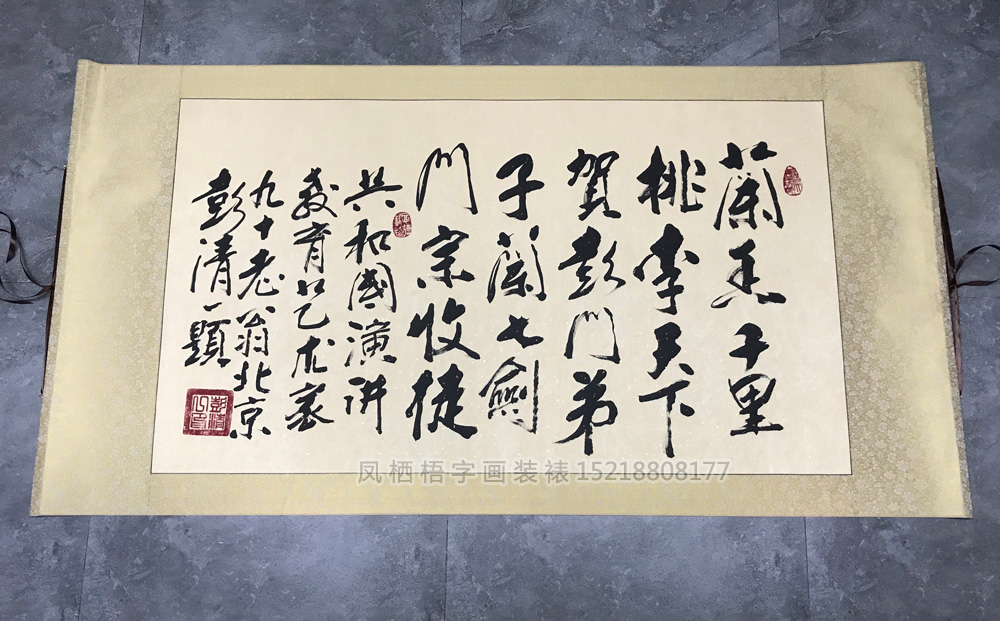 蘭香千里
桃李天下
賀彭門弟
子蘭七劍
門宗收捷
共和國演讲
教育艺术家
九十老翁北京
彭清一題
彭清一印
凤栖梧字画装裱15218808177